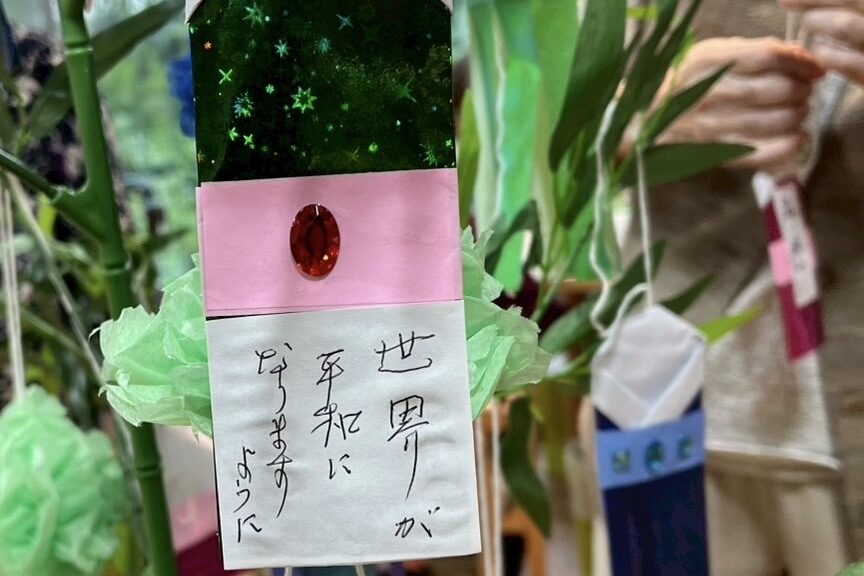 世界が
平和に
なります
ように